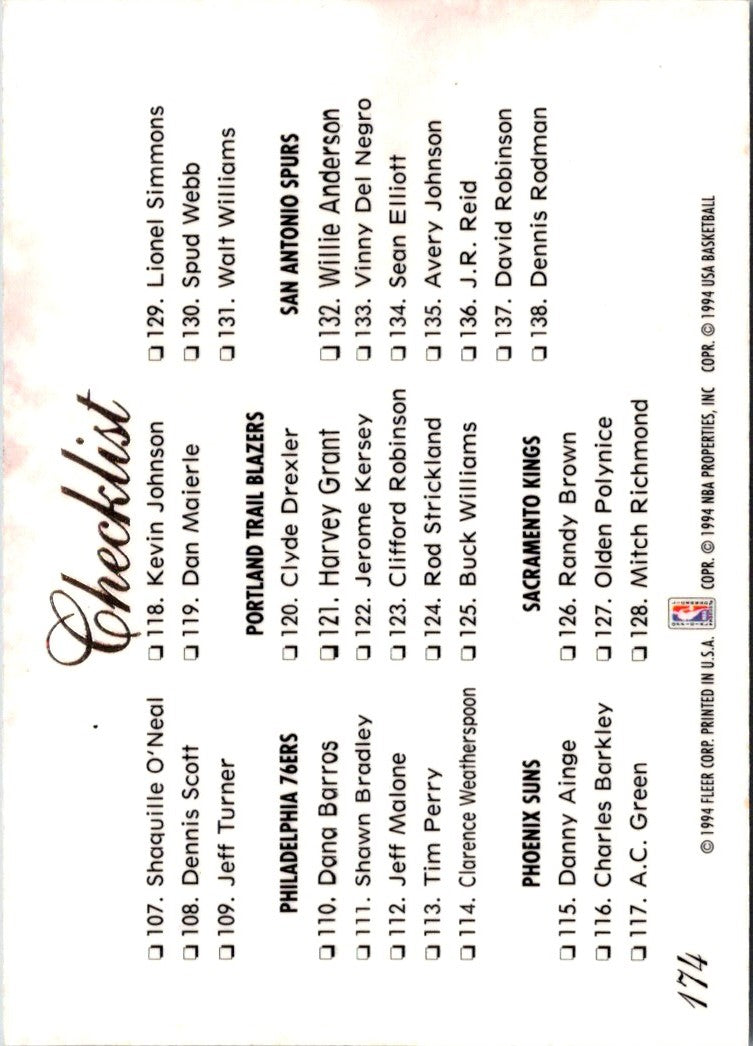 Checklist
❏ 107. Shaquille O'Neal
❏ 108. Dennis Scott
❏ 109. Jeff Turner
PHILADELPHIA 76ERS
❏ 110. Dana Barros
❏ 111. Shawn Bradley
❏ 112. Jeff Malone
❏ 113. Tim Perry
❏ 114. Clarence Weatherspoon
PHOENIX SUNS
❏ 115. Danny Ainge
❏ 116. Charles Barkley
❏ 117. A.C. Green
❏ 118. Kevin Johnson
❏ 119. Dan Majerle
PORTLAND TRAIL BLAZERS
❏ 120. Clyde Drexler
❏ 121. Harvey Grant
❏ 122. Jerome Kersey
❏ 123. Clifford Robinson
❏ 124. Rod Strickland
❏ 125. Buck Williams
SACRAMENTO KINGS
❏ 126. Randy Brown
❏ 127. Olden Polynice
❏ 128. Mitch Richmond
❏ 129. Lionel Simmons
❏ 130. Spud Webb
❏ 131. Walt Williams
SAN ANTONIO SPURS
❏ 132. Willie Anderson
❏ 133. Vinny Del Negro
❏ 134. Sean Elliott
❏ 135. Avery Johnson
❏ 136. J.R. Reid
❏ 137. David Robinson
❏ 138. Dennis Rodman
174
© 1994 FLEER CORP. PRINTED IN U.S.A. COPR. © 1994 NBA PROPERTIES, INC COPR. © 1994 USA BASKETBALL